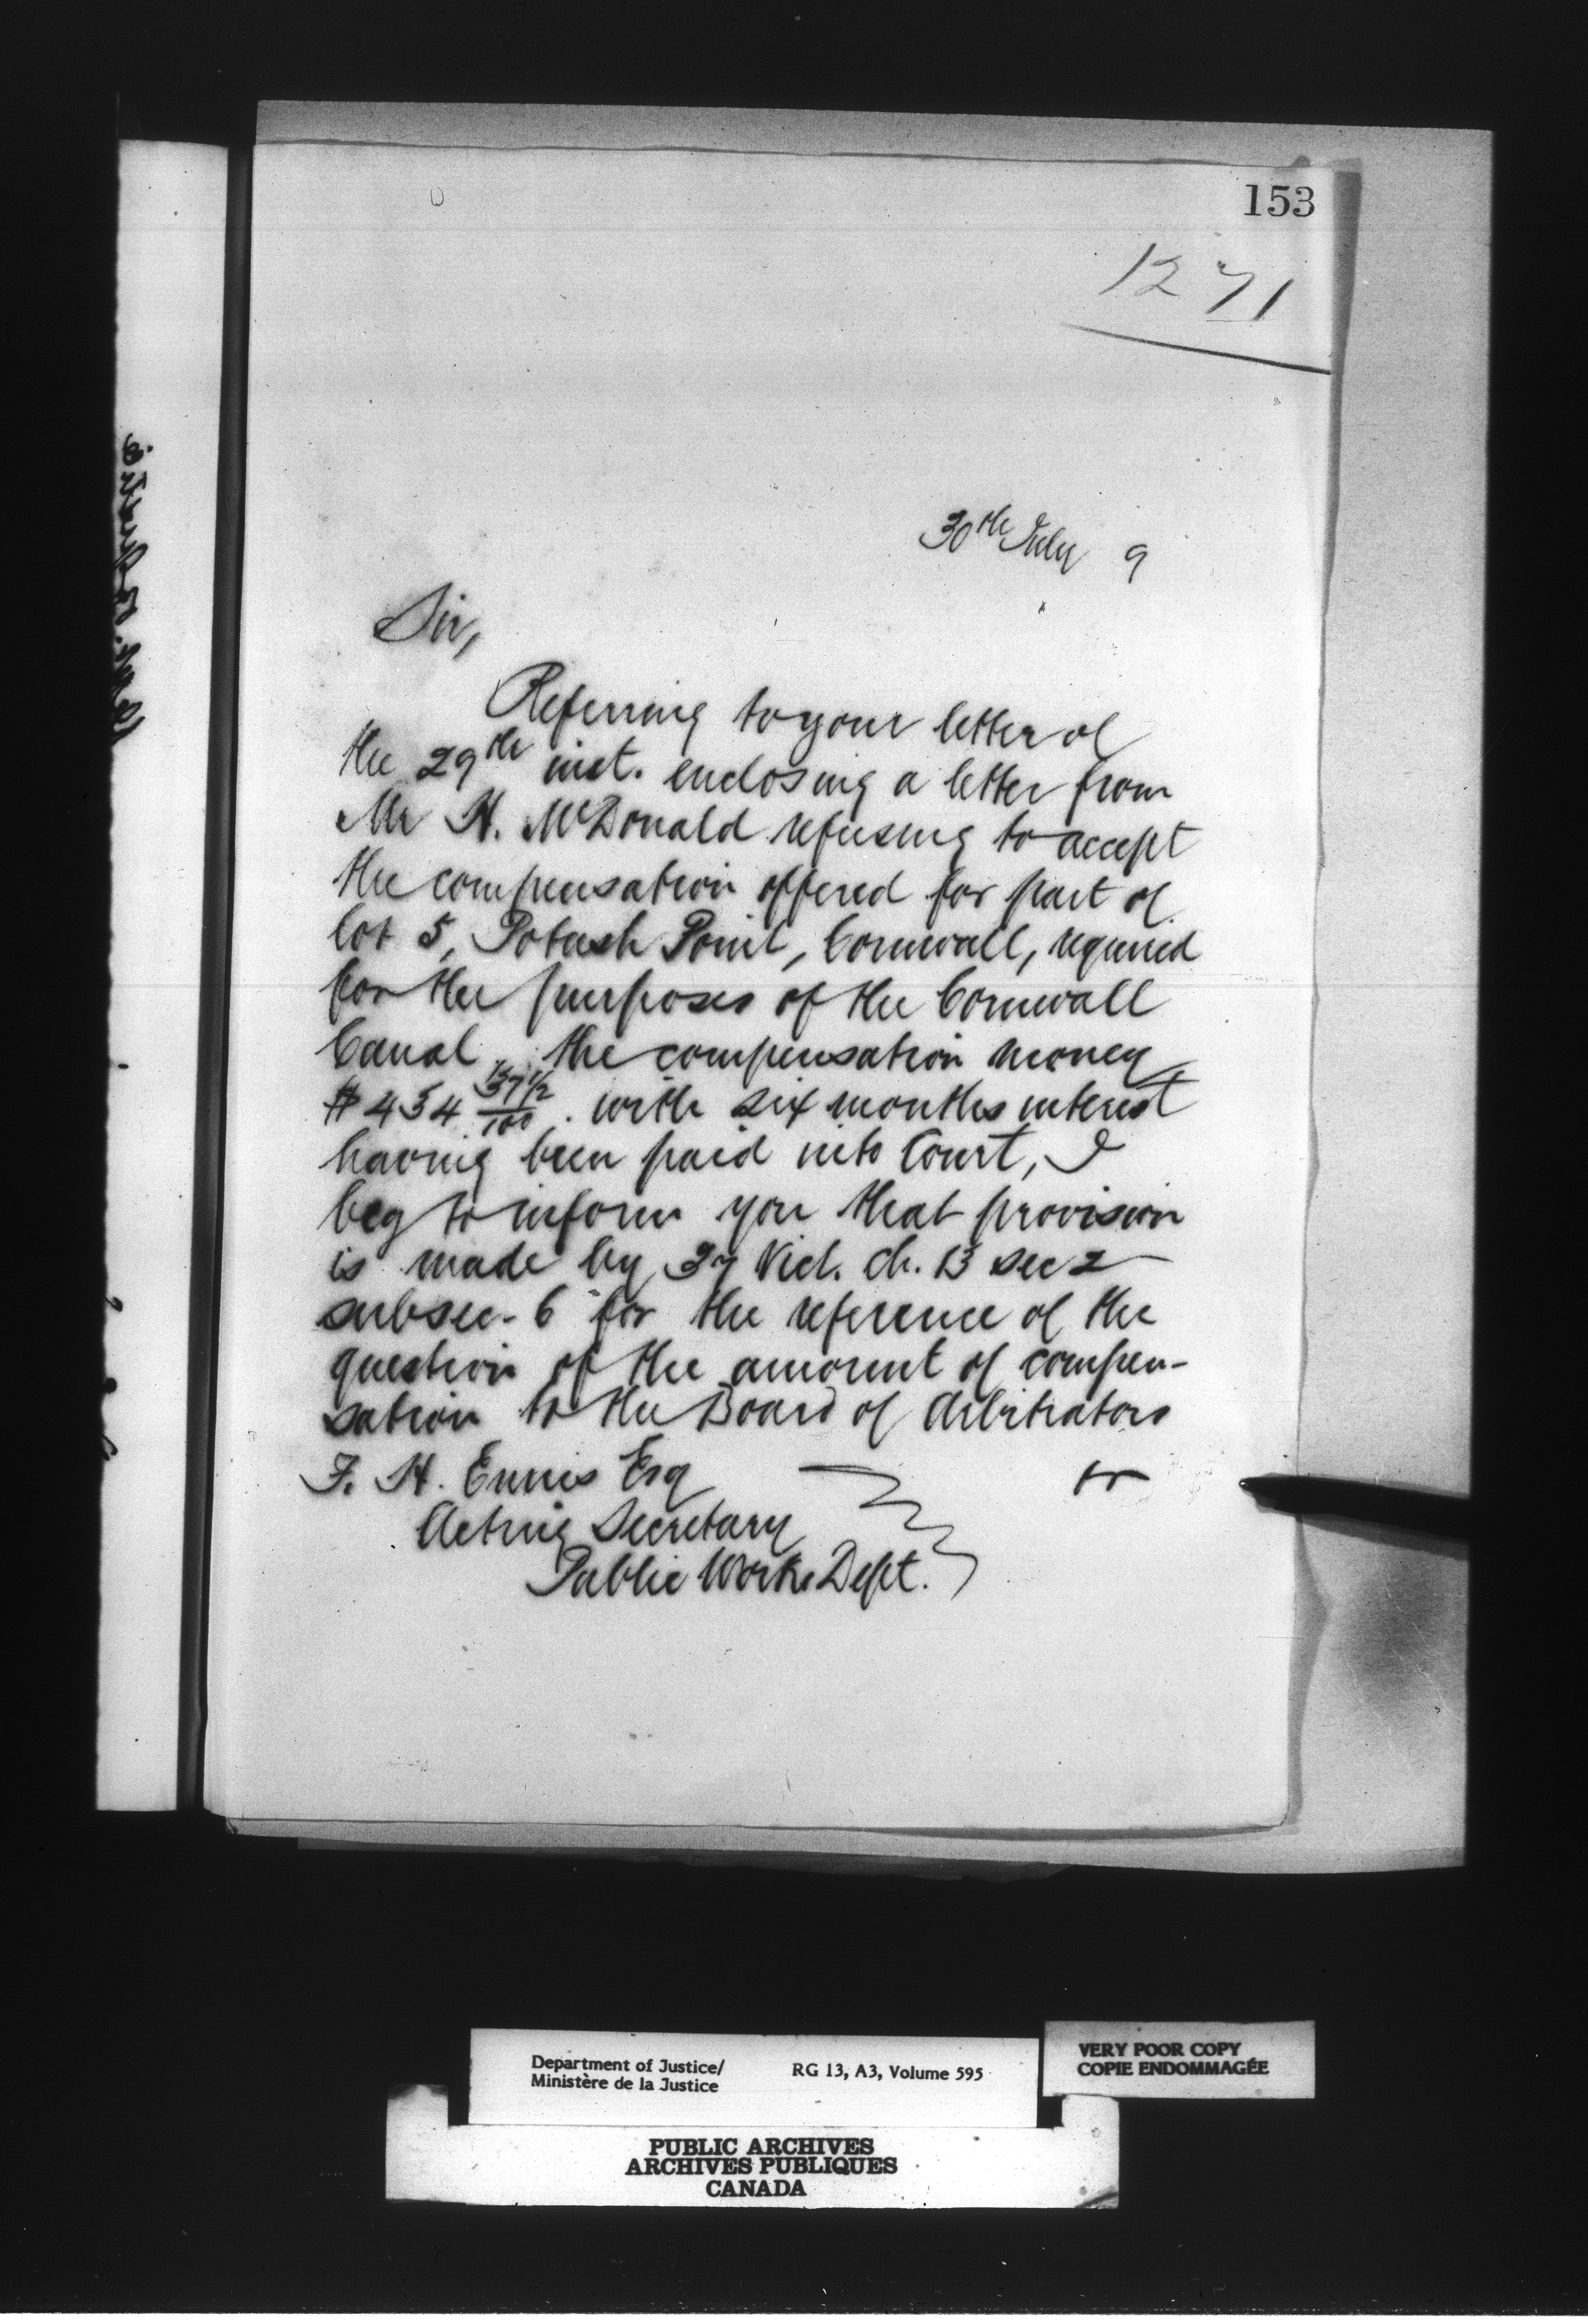 153
1271
30th July 9
Sir,
Referring to your letter of
the 29th inst. enclosing a letter from
Mr H. McDonald refusing to accept
the compensation offered for part of
lot 5, Potash Point, Cornwall, required
for the purposes of the Cornwall
Canal, the compensation money
$434 37½/100. with six months interest
having been paid into Court, I
beg to inform you that provision
is made by 37 Vict. ch. 13 sec 2
subsec. 6 for the reference of the
question of the amount of compen-
sation to the Board of Arbitrators
F. H. Ennis Esq
Acting Secretary
Public Works Dept.
Department of Justice/
Ministère de la Justice
RG 13, A3, Volume 595
VERY POOR COPY
COPIE ENDOMMAGÉE
PUBLIC ARCHIVES
ARCHIVES PUBLIQUES
CANADA